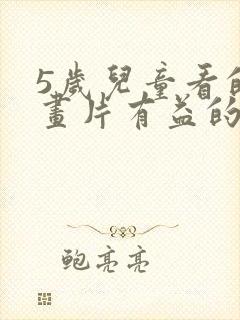 5歲兒童看的
畫片有益的
鮑亮亮